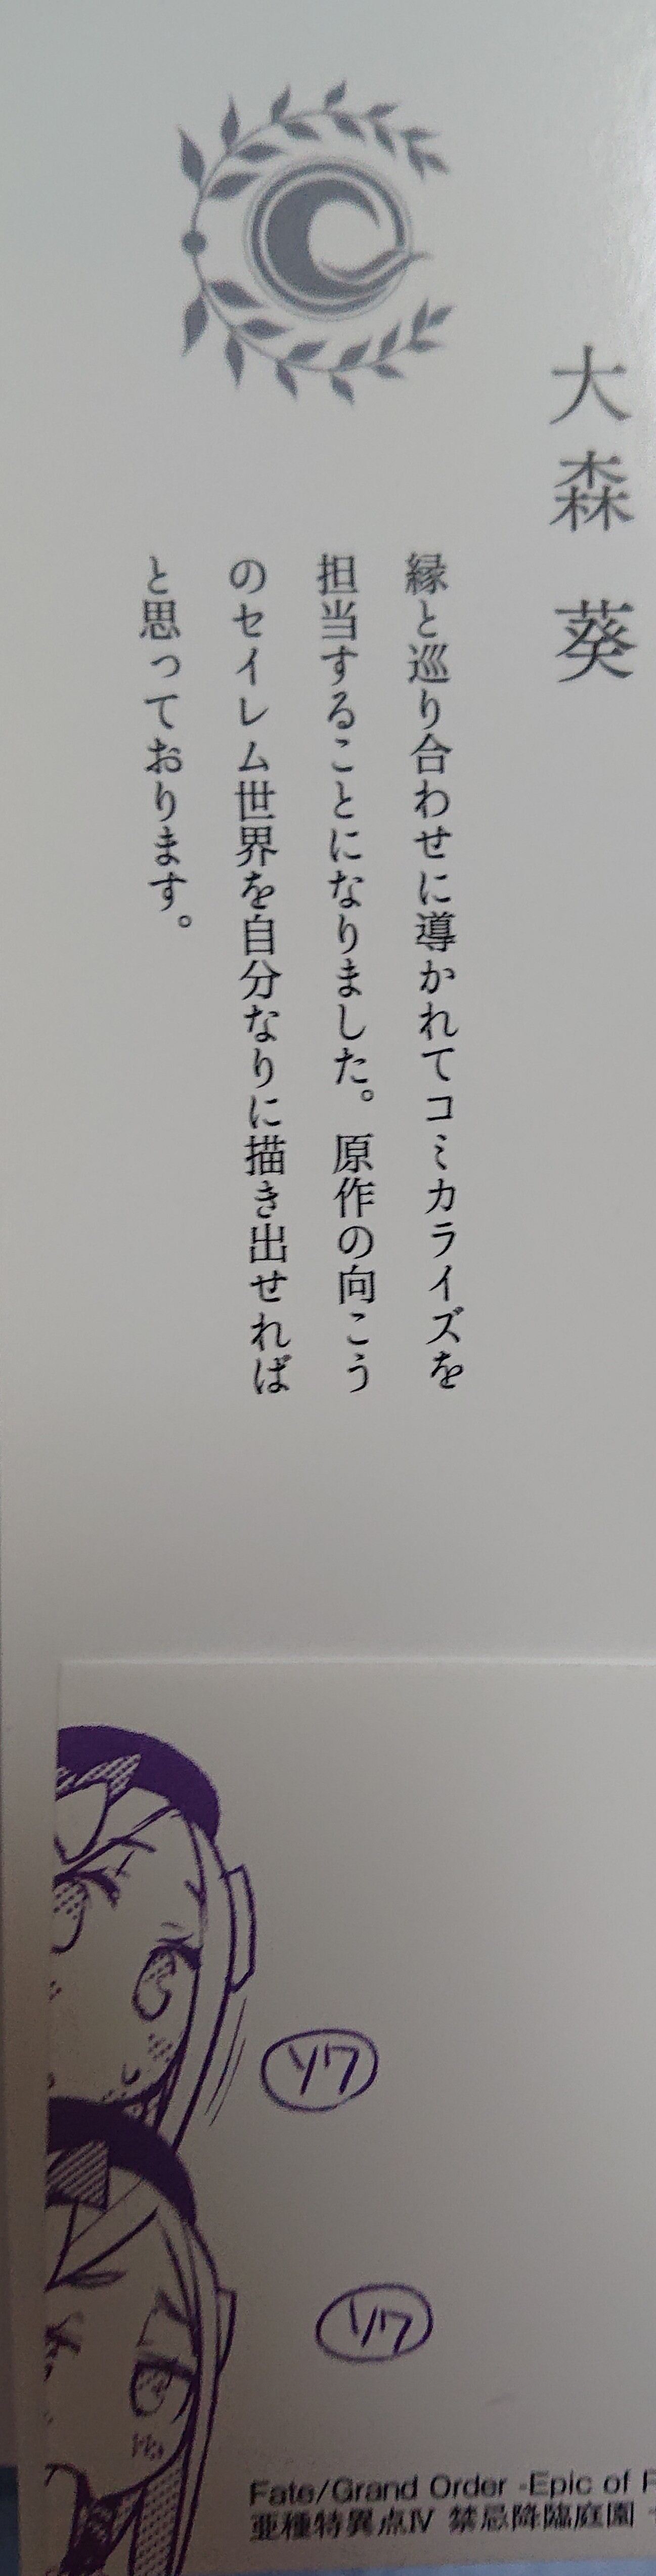 大森 葵
縁と巡り合わせに導かれてコミカライズを
担当することになりました。原作の向こう
のセイレム世界を自分なりに描き出せれば
と思っております。
ソワ
ソワ
Fate/Grand Order -Epic of
亜種特異点Ⅳ 禁忌降臨庭園